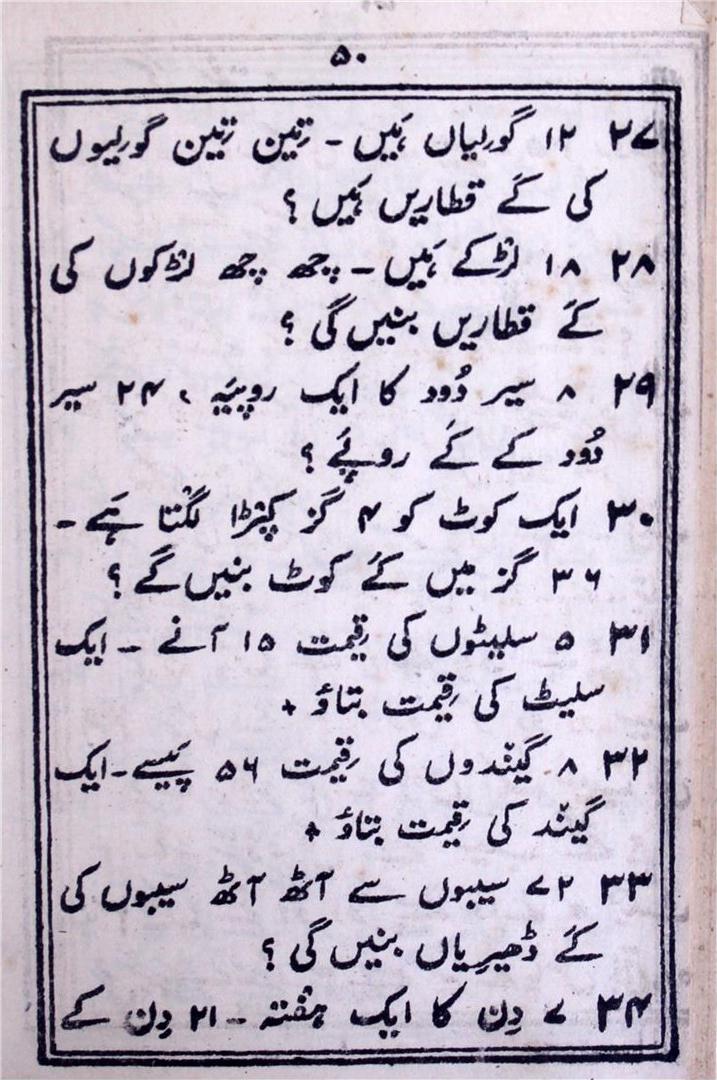 ۵۰
۲۷ ۱۲ گولیاں ہَیں - تِین تِین گولیوں
کی کَے قطاریں ہَیں ؟
۲۸ ۱۸ لڑکے ہَیں - چھ چھ لڑکوں کی
کَے قطاریں بنیں گی ؟
۲۹ ۸ سیر دُود کا ایک روپیَہ ، ۲۴ سیر
دُود کے کَے روپَے ؟
۳۰ ایک کوٹ کو ۴ گز کپڑا لگتا ہَے -
۳۶ گز میں کَے کوٹ بنیں گے ؟
۳۱ ۵ سلیٹوں کی قِیمت ۱۵ آنے - ایک
سلیٹ کی قِیمت بتاؤ +
۳۲ ۸ گیندوں کی قِیمت ۵۶ پَیسے - ایک
گیند کی قِیمت بتاؤ +
۳۳ ۷۲ سیبوں سے آٹھ آٹھ سیبوں کی
کَے ڈھیرِیاں بنیں گی ؟
۳۴ ۷ دِن کا ایک ہفتہ - ۲۱ دِن کے